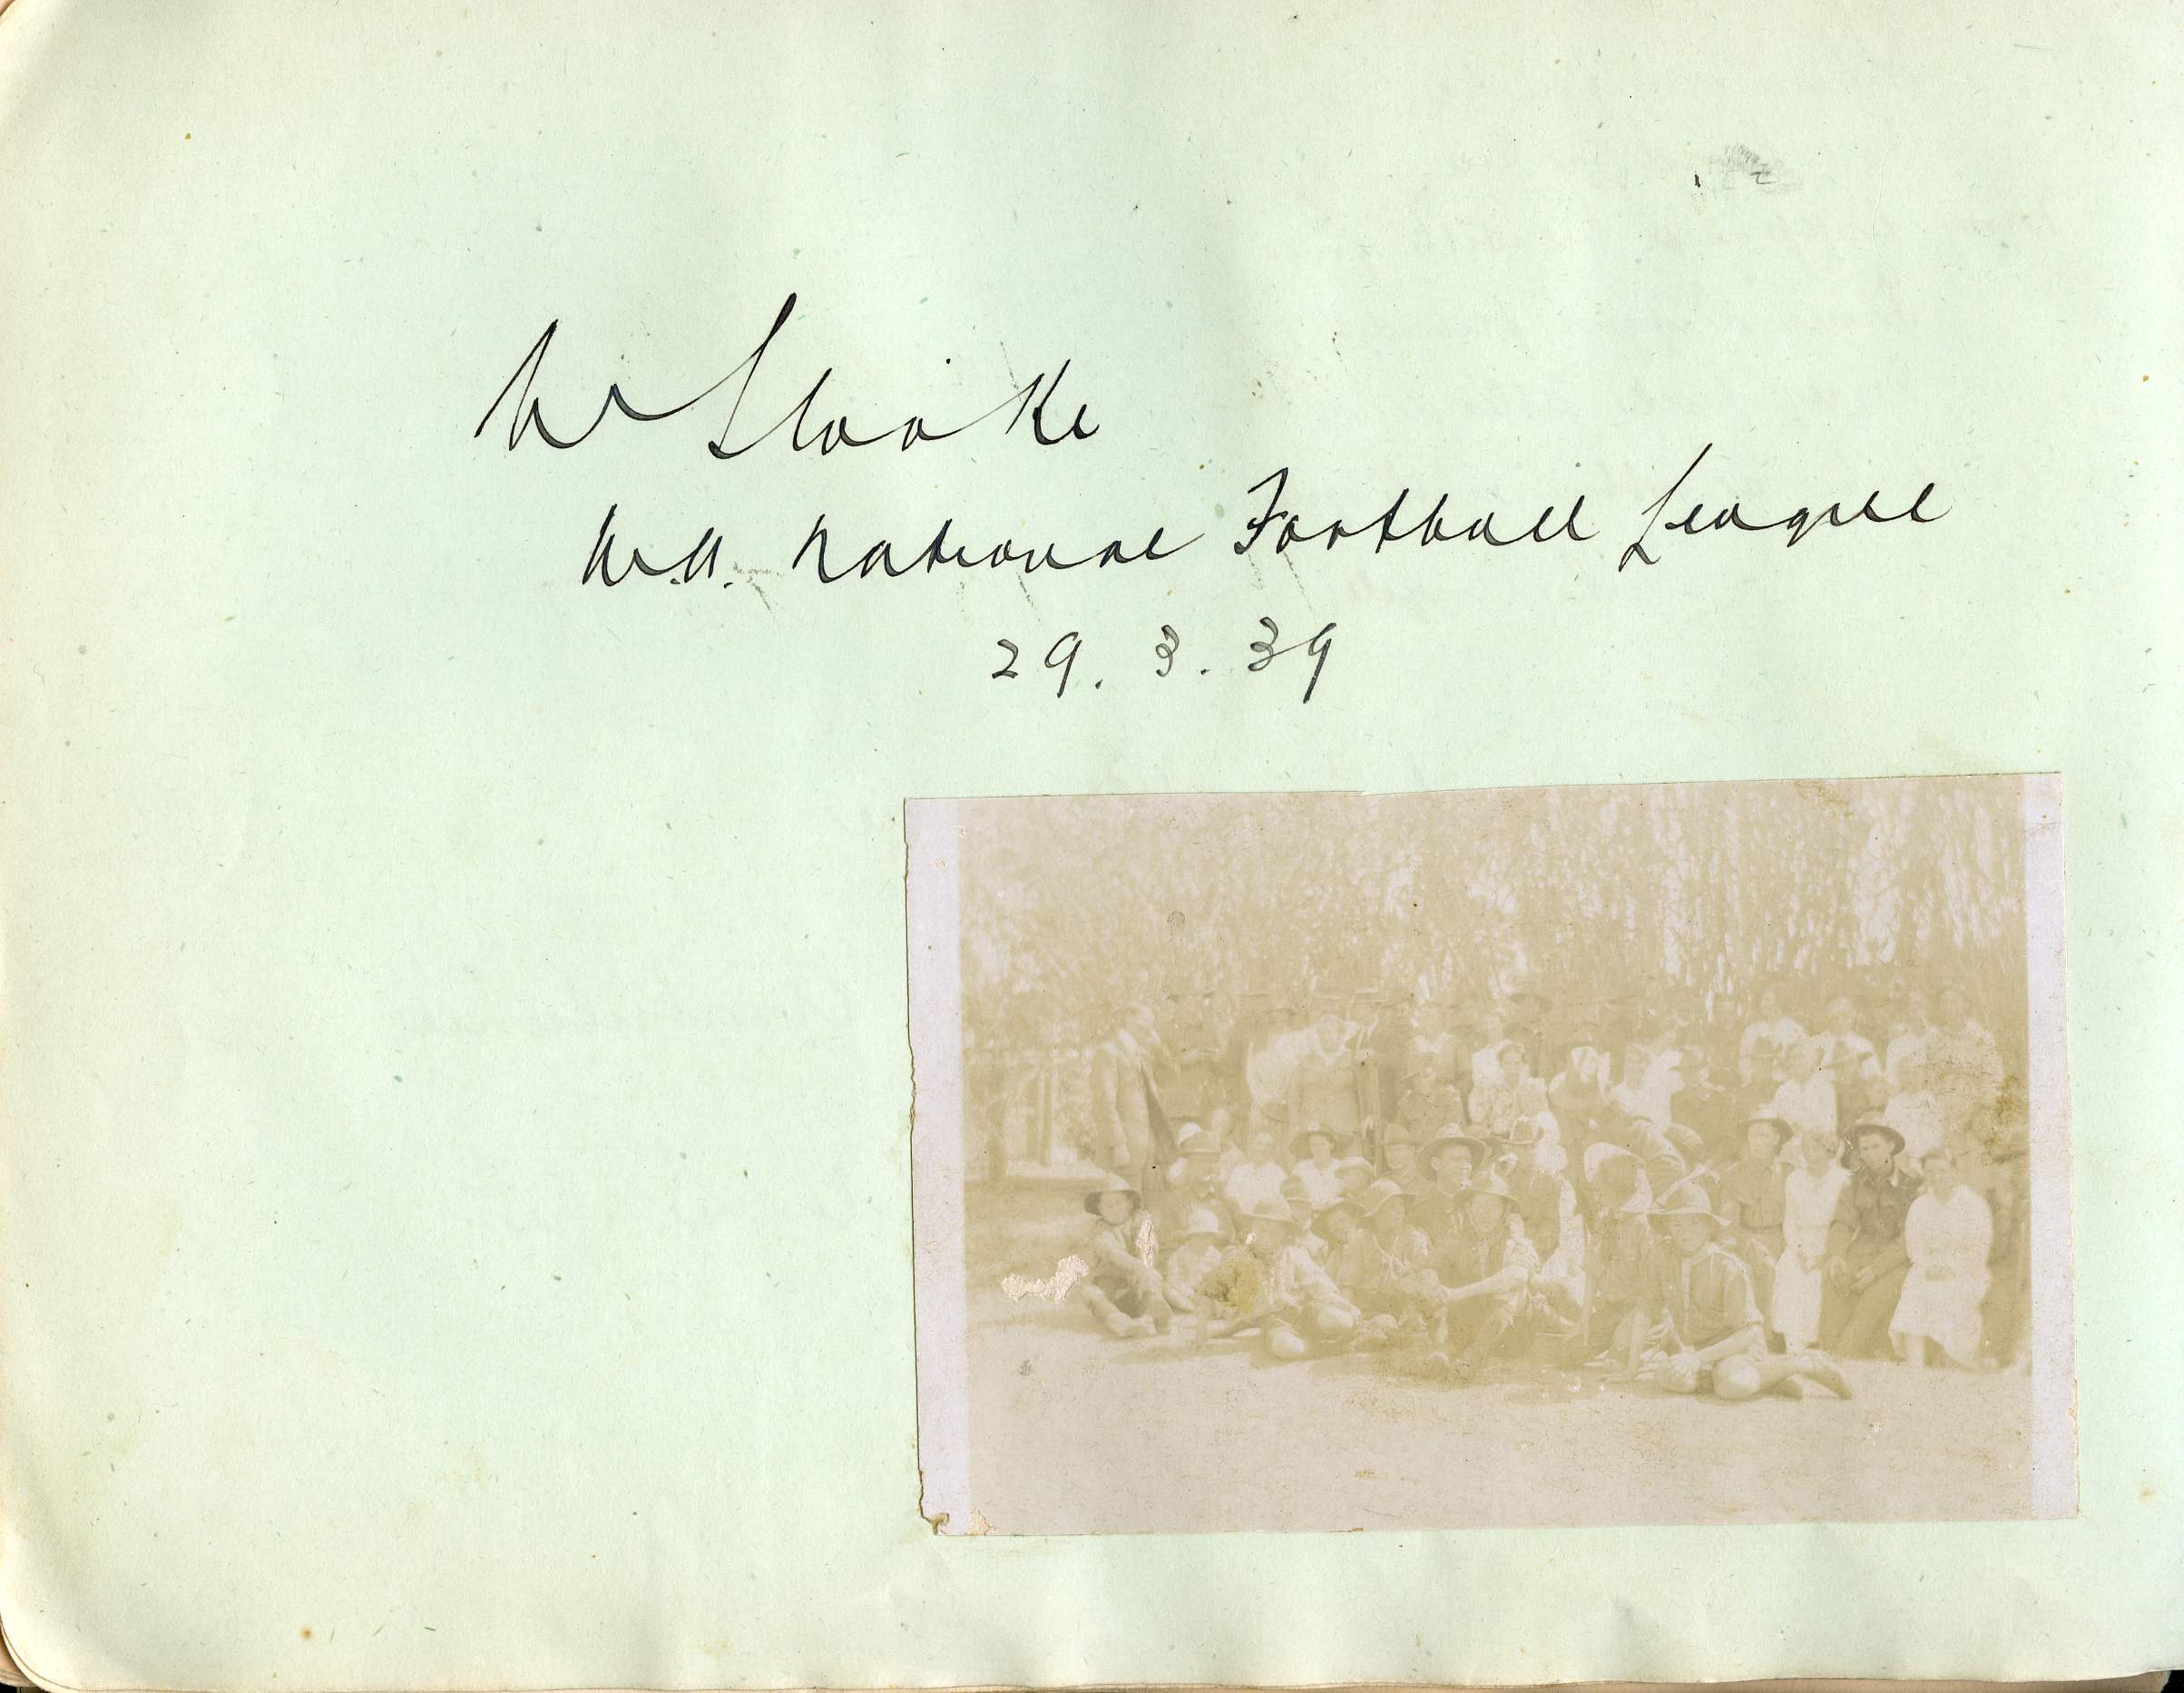 W Stooke
W.A. National Football League
29.3.39